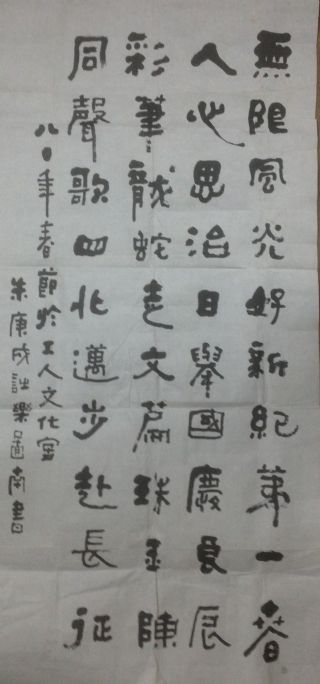 無限風光好新紀第一春
人心思治日舉國慶良辰
彩筆龍蛇走文篇珠玉陳
同聲歌四化邁步赴長征
八〇年春節於工人文化宮
朱庚成樂圖南書